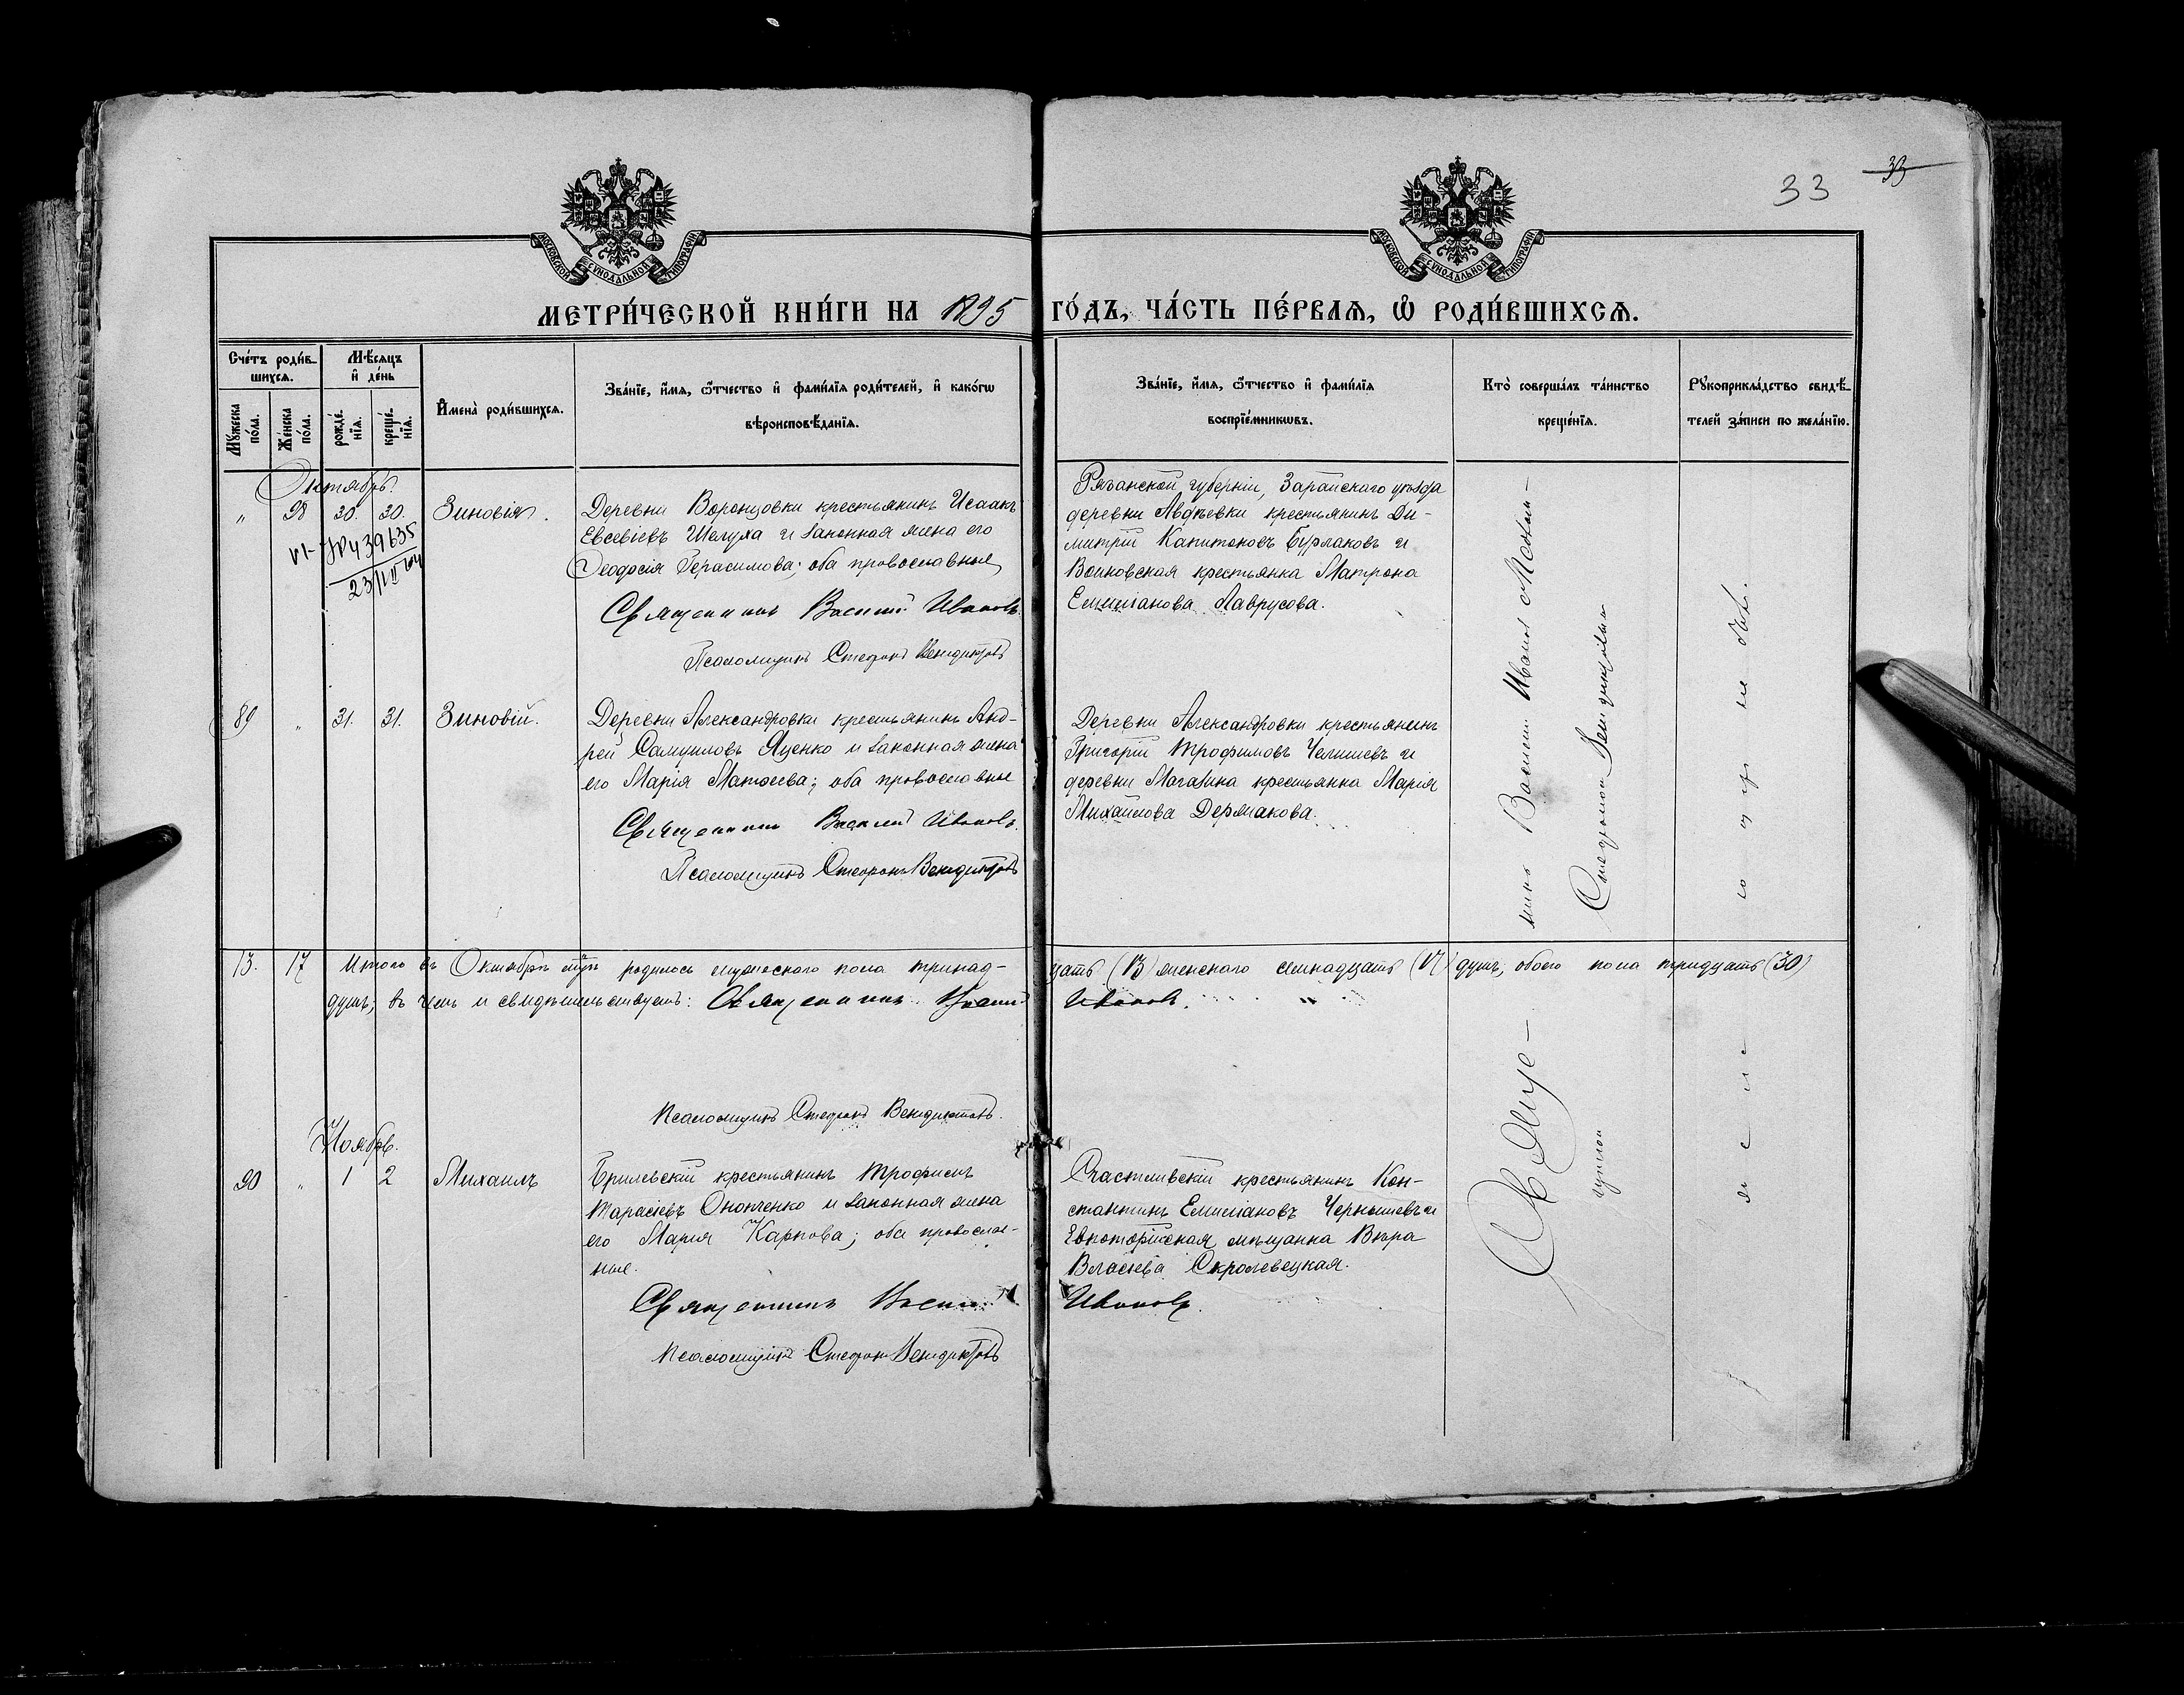 33
33
МОСКОВСКОЙ СУНОДАЛЬНОЙ ТИПОГРАФІИ
МОСКОВСКОЙ СУНОДАЛЬНОЙ ТИПОГРАФІИ
МЕТРИ́ЧЕСКОЙ КНИ́ГИ НА 1895 ГО́ДЪ, ЧА́СТЬ ПЕ́РВАѦ, Ѡ҆ РОДИ́ВШИХСѦ.
Сче́тъ роди́в-
шихсѧ.
Мꙋ́жеска по́ла.
Же́нска по́ла.
Мѣ́сѧцъ
и҆ де́нь
рожде́-
нїѧ.
креще́-
нїѧ.
И҆мена̀ роди́вшихсѧ.
Зва́нїе, и҆́мѧ, ѻ҆́тчество и҆ фами́лїѧ роди́телей, и҆ како́гѡ
вѣроисповѣ́данїѧ.
Зва́нїе, и҆́мѧ, ѻ҆́тчество и҆ фами́лїѧ
воспрїе́мникѡвъ.
Кто̀ соверша́лъ та́инство
креще́нїѧ.
Рꙋкоприкла́дство свидѣ́-
телей за́писи по жела́нїю.
Октябрь.
" 98 30. 30. Зиновія.
Деревни Воронцовки крестьянинъ Исаакъ
Евсевіевъ Шелуха и законная жена его
Ѳеодосія Герасимова; оба православные
Священникъ Василій Ивановъ
Псаломщикъ Стефанъ Венедиктовъ
Рязанской губерніи, Зарайскаго уѣзда
деревни Авдѣевки крестьянинъ Ди-
митрій Капитоновъ Бурлаковъ и
крестьянка Матрона
Емиліанова Лаврусова.
89 " 31. 31. Зиновій.
Деревни Александровки крестьянинъ Анд-
рей Самуиловъ Яценко и законная жена
его Марія Матѳеева; оба православные
Священникъ Василій Ивановъ.
Псаломщикъ Стефанъ Венедиктовъ
Деревни Александровки крестьянинъ
Григорій Трофимовъ Челишевъ и
деревни Магазина крестьянка Марія
Михайлова Держакова.
13. 17 Итого въ Октябрѣ мцѣ родилось мужескаго пола тринад-цать (13) женскаго семнадцать (17) душъ, обоего пола тридцать (30)
душъ; въ чемъ и свидѣтельствуетъ: Священникъ Василій Ивановъ.
Псаломщикъ Стефанъ Венедиктовъ.
Ноябрь.
90 " 1 2 Михаилъ
крестьянинъ Трофимъ
Тарасіевъ Онопченко и законная жена
его Марія Карпова; оба православ-
ные.
Священникъ Василій Ивановъ.
Псаломщикъ Стефанъ Венедиктовъ
Счастливскій крестьянинъ Кон-
стантинъ Емиліановъ Чернышевъ и
Евпаторійская мѣщанка Вѣра
Власіева Скролевецкая.
Священникъ Василій Ивановъ
Стефаномъ Венедиктовымъ